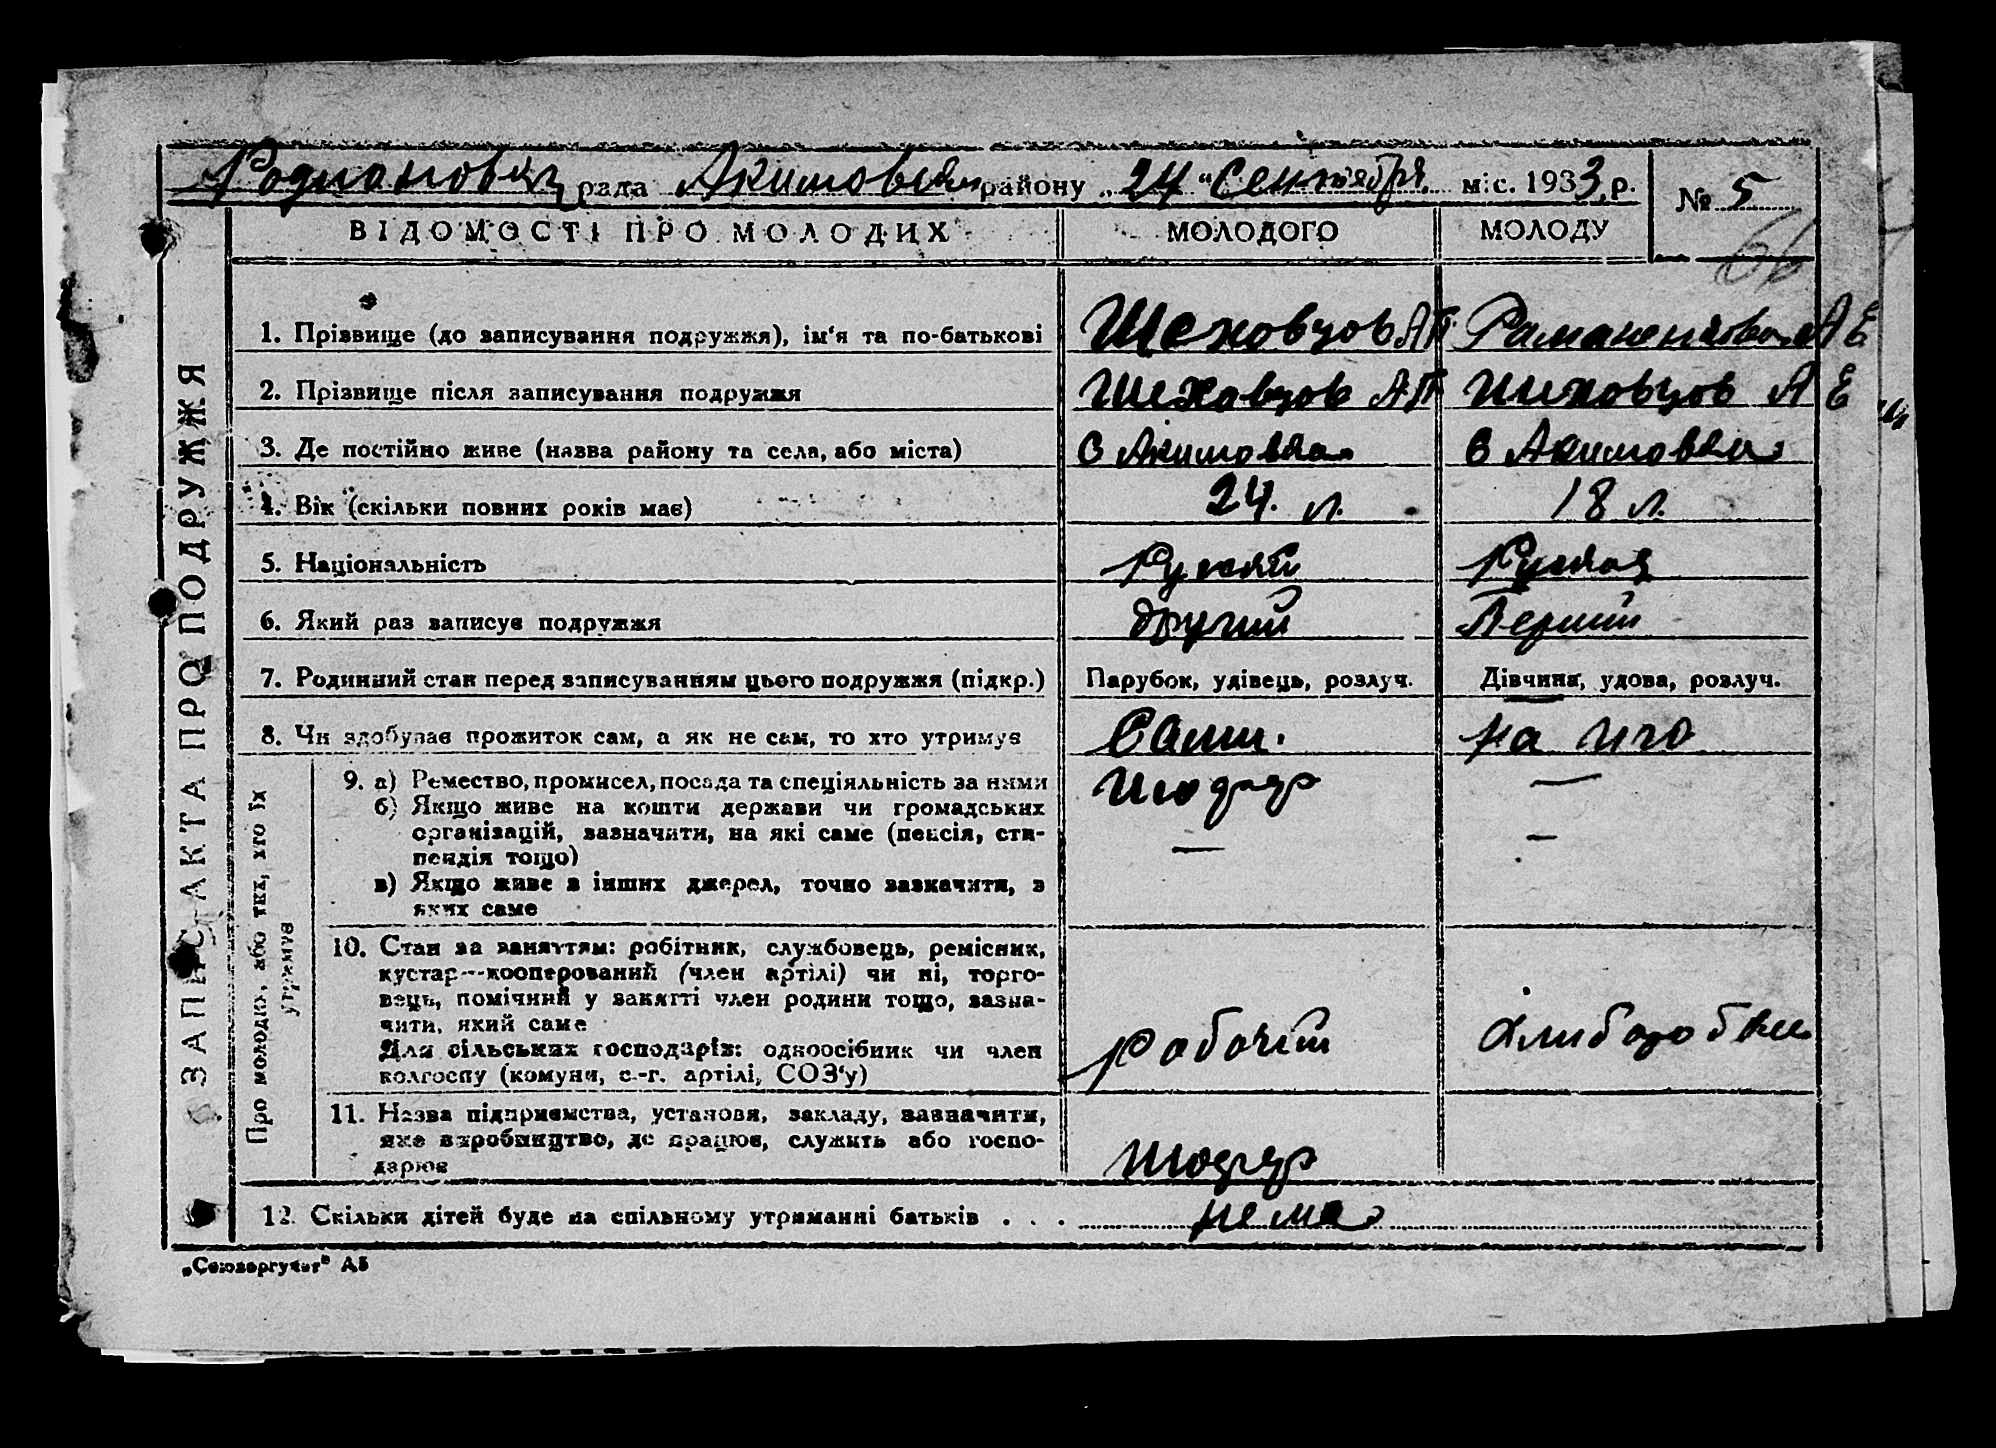 рада Акимовским району „24 “ Сентября міс. 1933 р.
№ 5
ВІДОМОСТІ ПРО МОЛОДИХ МОЛОДОГО МОЛОДУ
1. Прізвище (до записування подружжя), ім‘я та по-батькові Шеховцов АП АЕ
2. Прізвище після записування подружжя Шеховцов АП Шиховцов А Е
3. Де постійно живе (назва району та села, або міста) С Акимовка С Акимовка
4. Вік (скільки повних років має) 24. л. 18 л.
5. Національність Руский Руская
6. Який раз записує подружжя другий Перший
7. Родинний стан перед записуванням цього подружжя (підкр.) Парубок, удівець, розлуч. Дівчина, удова, розлуч.
8. Чи здобуває прожиток сам, а як не сам, то хто утримує Сам. на иго
9. а) Ремество, промисел, посада та спеціяльність за ними Шофер —
б) Якщо живе на кошти держави чи громадських
організацій, зазначити, на які саме (пенсія, сти- — —
пендія тощо)
в) Якщо живе з інших джерел, точно зазначити, з
яких саме
10. Стан за заняттям: робітник, службовець, ремісник,
кустар—кооперований (член артілі) чи ні, торго-
вець, помічний у занятті член родини тощо, зазна-
чити, який саме рабочий
Для сільських господарів: одноосібник чи член
колгоспу (комуни, с.-г. артілі, СОЗ‘у)
11. Назва підприємства, установи, закладу, зазначити,
яке виробництво, де працює, служить або госпо-
дарює Шофер
12. Скільки дітей буде на спільному утриманні батьків . . . нема
ЗАПИС АКТА ПРО ПОДРУЖЖЯ
Про молодих, або тих, хто їх
утримує
„Союзоргучет“ А5